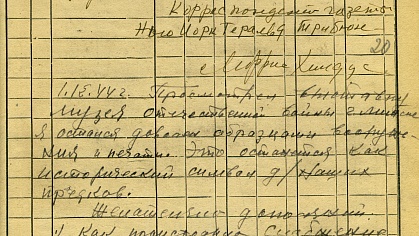 Корреспондент газеты
Нью Йорк Геральд Трибюн
20
с Моррис Хиндус
1.IX.44 г. Просмотрел выставку
музея отечественной войны г. Минске
Я остался доволен образцами вооруже-
ния и печати. Это останется как
исторический символ д/наших
предков.
Желательно
1/ Как